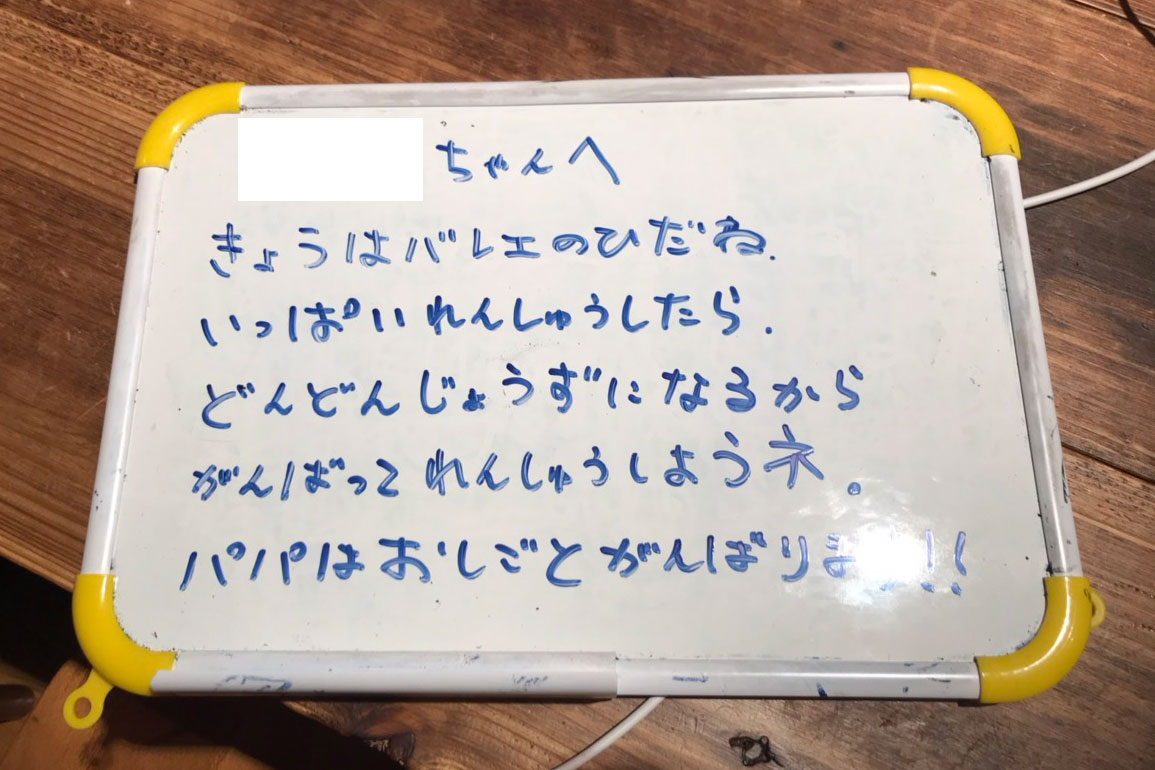 ちゃんへ
きょうはバレエのひだね.
いっぱいれんしゅうしたら.
どんどんじょうずになるから
がんばってれんしゅうしようネ。
パパはおしごとがんばります!!